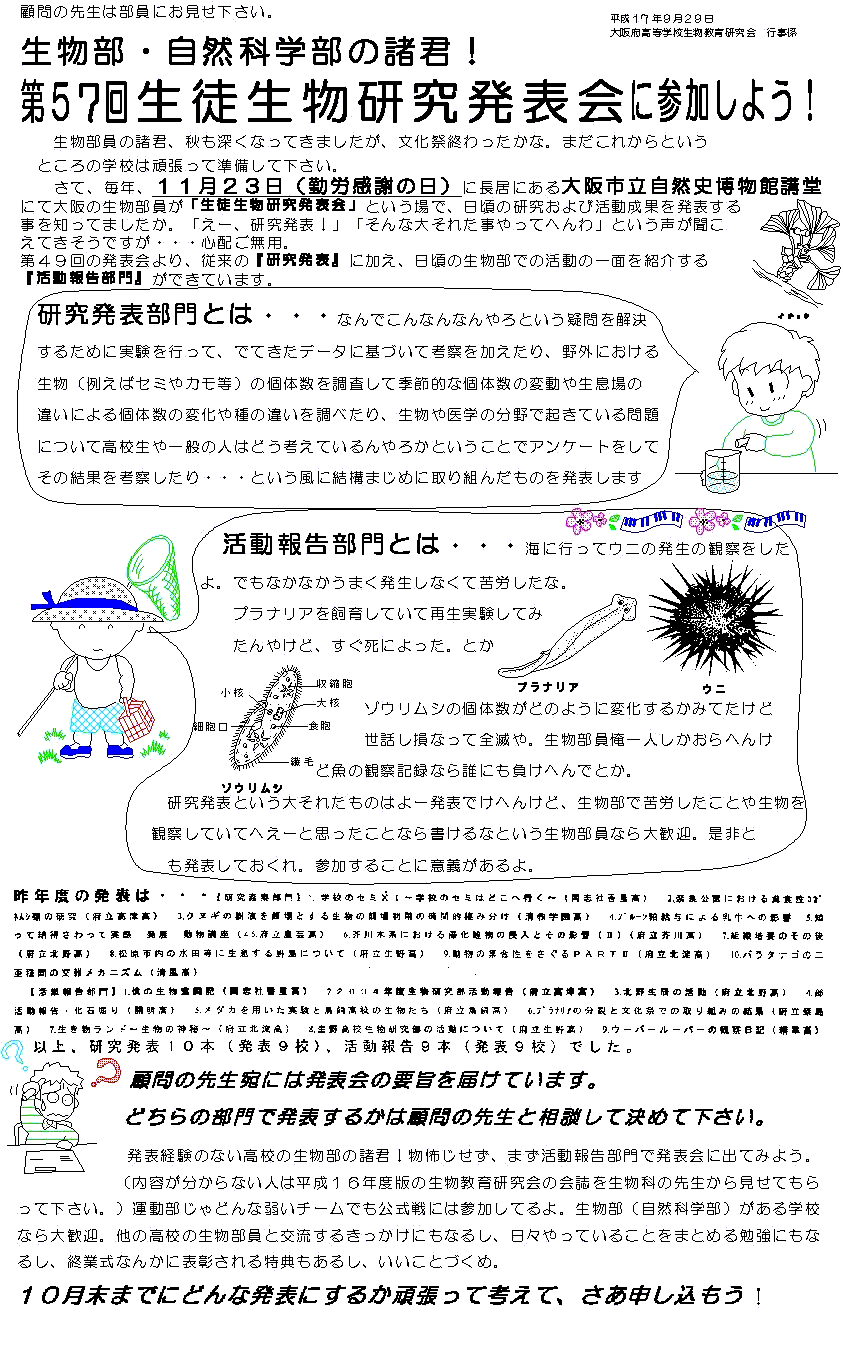 顧問の先生は部員にお見せ下さい。
平成17年9月29日
大阪府高等学校生物教育研究会　行事係
生物部・自然科学部の諸君！
第57回生徒生物研究発表会に参加しよう！
生物部員の諸君、秋も深くなってきましたが、文化祭終わったかな。まだこれからという
ところの学校は頑張って準備して下さい。
さて、毎年、11月23日（勤労感謝の日）に長居にある大阪市立自然史博物館講堂
にて大阪の生物部員が「生徒生物研究発表会」という場で、日頃の研究および活動成果を発表する
事を知ってましたか。「えー、研究発表！」「そんな大それた事やってへんわ」という声が聞こ
えてきそうですが・・・心配ご無用。
第４９回の発表会より、従来の『研究発表』に加え、日頃の生物部での活動の一面を紹介する
『活動報告部門』ができています。
イチョウ
研究発表部門とは・・・なんでこんなんなんやろという疑問を解決
するために実験を行って、でてきたデータに基づいて考察を加えたり、野外における
生物（例えばセミやカモ等）の個体数を調査して季節的な個体数の変動や生息場の
違いによる個体数の変化や種の違いを調べたり、生物や医学の分野で起きている問題
について高校生や一般の人はどう考えているんやろかということでアンケートをして
その結果を考察したり・・・という風に結構まじめに取り組んだものを発表します
活動報告部門とは・・・海に行ってウニの発生の観察をした
よ。でもなかなかうまく発生しなくて苦労したな。
プラナリアを飼育していて再生実験してみ
たんやけど、すぐ死によった。とか
プラナリア
ウニ
小核
収縮胞
大核
細胞口
食胞
繊毛
ゾウリムシ
ゾウリムシの個体数がどのように変化するかみてたけど
世話し損なって全滅や。生物部員俺一人しかおらへんけ
ど魚の観察記録なら誰にも負けへんでとか。
研究発表という大それたものはよー発表でけへんけど、生物部で苦労したことや生物を
観察していてへえーと思ったことなら書けるなという生物部員なら大歓迎。是非と
も発表しておくれ。参加することに意義があるよ。
昨年度の発表は・・・【研究発表部門】1.学校のセミⅩⅠ～学校のセミはどこへ行く～（同志社香里高）
の研究（府立高津高）　3.クヌギの樹液を餌場とする生物の　（清教学園高）　4.　による乳牛への影響　5.知
って納得さわって実感　発展　動物講座（　府立農芸高）　6.芥川水系における帰化植物の侵入とその影響（Ⅱ）（府立芥川高）　7.組織培養のその後
（府立北野高）　8.松原市内の水田等に生息する野鳥について（府立生野高）　9.動物の集合性をさぐるＰＡＲＴⅡ（府立北淀高）　10.バラタナゴの二
種間の交雑メカニズム（清風高）
【活動報告部門】1.僕の生物奮闘記（同志社香里高）　2.２００４年度生物研究部活動報告（府立高津高）　3.北野生物の活動（府立北野高）　4.部
活動報告・化石掘り（開明高）　5.メダカを用いた実験と鳥飼高校の生物たち（府立鳥飼高）　6.プラナリアの分裂と文化祭での取り組みの結果（府立柴島
高）　7.生き物ランド～生物の神秘～（府立北淀高）　8.生野高校生物研究部の活動について（府立生野高）　9.ウーパールーパーの観察日記（精華高）
以上、研究発表10本（発表9校）、活動報告9本（発表9校）でした。
顧問の先生宛には発表会の要旨を届けています。
どちらの部門で発表するかは顧問の先生と相談して決めて下さい。
発表経験のない高校の生物部の諸君！物怖じせず、まず活動報告部門で発表会に出てみよう。
（内容が分からない人は平成１６年度版の生物教育研究会の会誌を生物科の先生から見せてもら
って下さい。）運動部じゃどんな弱いチームでも公式戦には参加してるよ。生物部（自然科学部）がある学校
なら大歓迎。他の高校の生物部員と交流するきっかけにもなるし、日々やっていることをまとめる勉強にもな
るし、終業式なんかに表彰される特典もあるし、いいことづくめ。
１０月末までにどんな発表にするか頑張って考えて、さあ申し込もう！